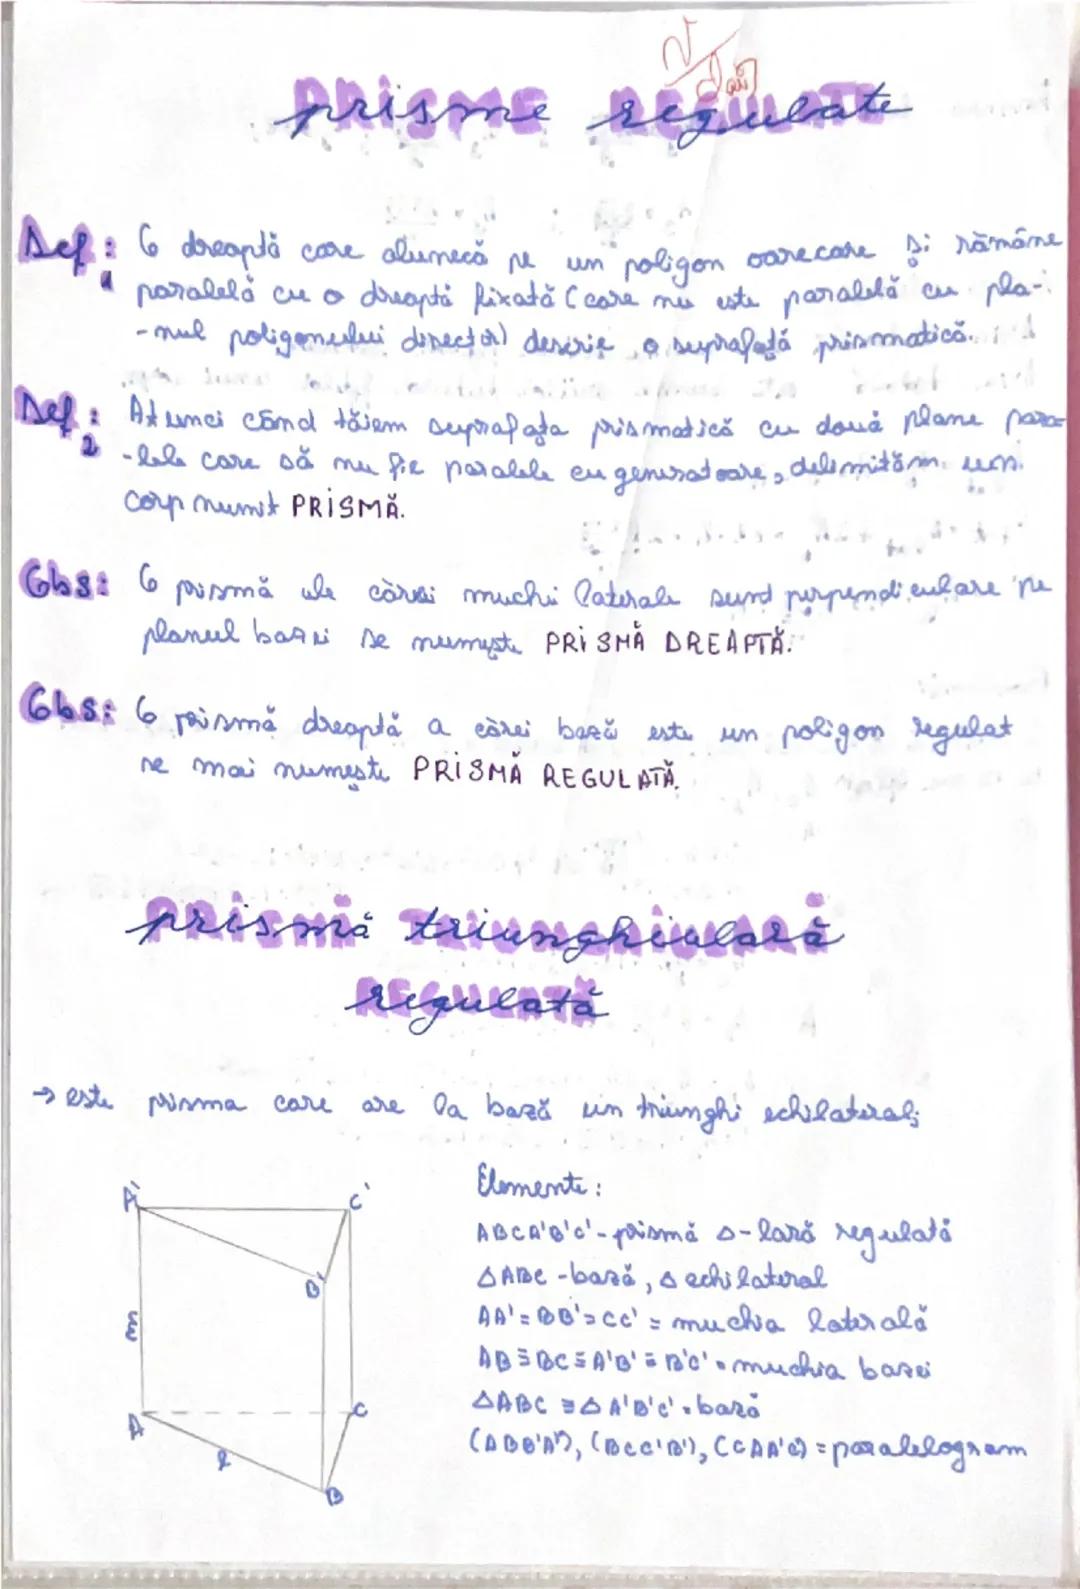 prisme regulate
Def: O dreaptă care alunecă pe un poligon oarecare și rămâne
1 paralelă cu o dreaptă fixată (care nu este paralelă cu pla-
-nul poligonului director) descrie o suprafață prismatică.
Def: Atunci când tăiem suprafața prismatică cu două plane para-
2 -lele care să nu fie paralele cu generatoare, delimităm un
corp numit PRISMĂ.
Obs: O prismă ale cărei muchii laterale sunt perpendiculare pe
planul bazei se numește PRISMĂ DREAPTĂ.
Obs: O prismă dreaptă a cărei bază este un poligon regulat
se mai numește PRISMĂ REGULATĂ.
prismă triunghiulară
regulată
→ este prisma care are la bază un triunghi echilateral;
Elemente:
ABCA'B'C' - prismă Δ-lară regulată
ΔABC - bază, Δ echilateral
AA' = BB' = CC' = muchia laterală
AB ≡ BC ≡ A'B' ≡ B'C' = muchia bazei
ΔABC ≡ Δ A'B'C' = bază
(ABB'A'), (BCC'B'), (CAA'C') = paralelogram
A' C'
B'
A C
l
B